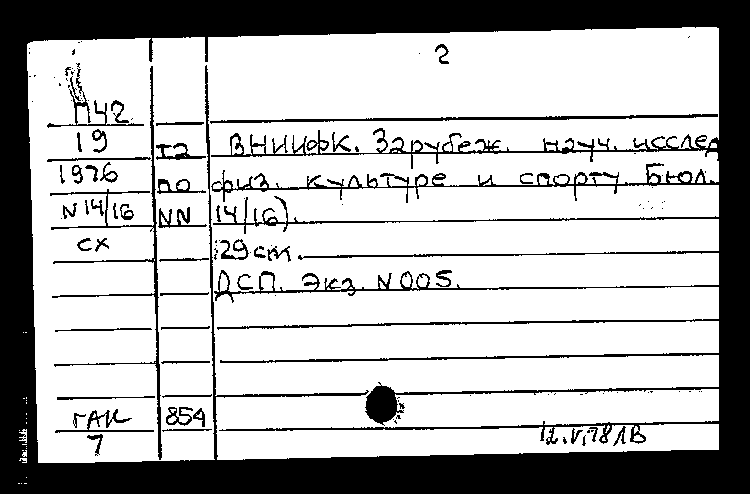 2
П42
19 та ВНИИФК. Зарубеж. науч. исслед
1976 по физ. культуре и спорту. Бюл.
N14/16 NN 14/16).
сх 29 см.
ДСП. Экз. N 005.
ГАК 854
7 12.V.78 ЛВ